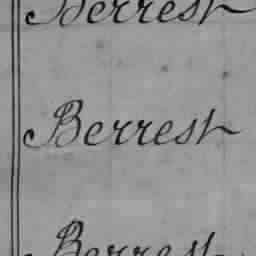 Berrest
Berrest
Berrest